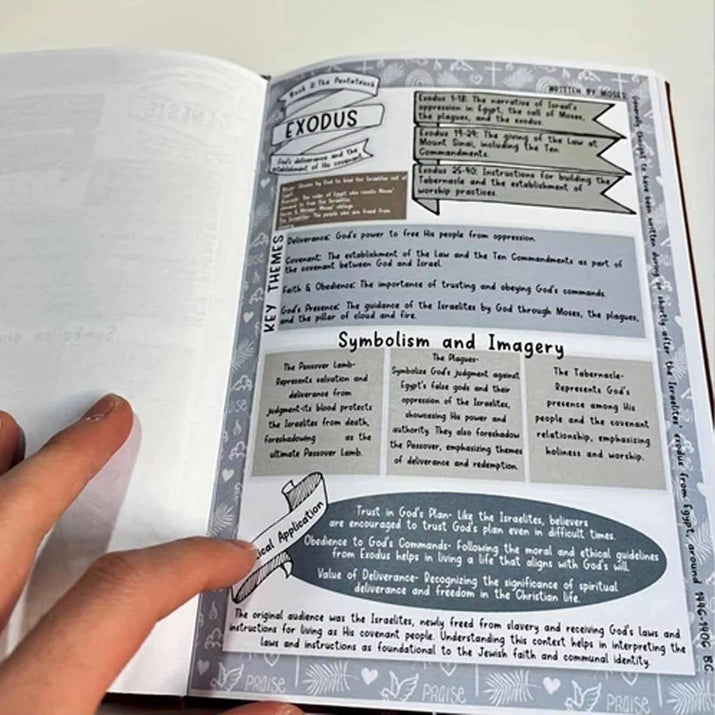 Book 2: The Pentateuch
EXODUS
God's deliverance and the
establishment of His covenant
WRITTEN BY MOSES:
Generally thought to have been written during or shortly after the Israelites' exodus from Egypt, around 1446-1406 BC.
Exodus 1-18: The narrative of Israel's
oppression in Egypt, the call of Moses,
the plagues, and the exodus.
Exodus 19-24: The giving of the Law at
Mount Sinai, including the Ten
Commandments.
Exodus 25-40: Instructions for building the
Tabernacle and the establishment of
worship practices.
Moses: Chosen by God to lead the Israelites out of
Egypt
Pharaoh: The ruler of Egypt who resists Moses'
demand to free the Israelites.
Aaron & Miriam: Moses' siblings
The Israelites: The people who are freed from
KEY THEMES
Deliverance: God's power to free His people from oppression.
Covenant: The establishment of the Law and the Ten Commandments as part of
the covenant between God and Israel.
Faith & Obedience: The importance of trusting and obeying God's commands.
God's Presence: The guidance of the Israelites by God through Moses, the plagues,
and the pillar of cloud and fire.
Symbolism and Imagery
The Passover Lamb-
Represents salvation and
deliverance from
judgment-its blood protects
the Israelites from death,
foreshadowing as the
ultimate Passover Lamb.
The Plagues-
Symbolize God's judgment against
Egypt's false gods and their
oppression of the Israelites,
showcasing His power and
authority. They also foreshadow
the Passover, emphasizing themes
of deliverance and redemption.
The Tabernacle-
Represents God's
presence among His
people and the covenant
relationship, emphasizing
holiness and worship.
ical Application
Trust in God's Plan- Like the Israelites, believers
are encouraged to trust God's plan even in difficult times.
Obedience to God's Commands- Following the moral and ethical guidelines
from Exodus helps in living a life that aligns with God's will.
Value of Deliverance- Recognizing the significance of spiritual
deliverance and freedom in the Christian life.
The original audience was the Israelites, newly freed from slavery and receiving God's laws and
instructions for living as His covenant people. Understanding this context helps in interpreting the
laws and instructions as foundational to the Jewish faith and communal identity.
PRAISE
PRAISE
PRAISE
PRAISE